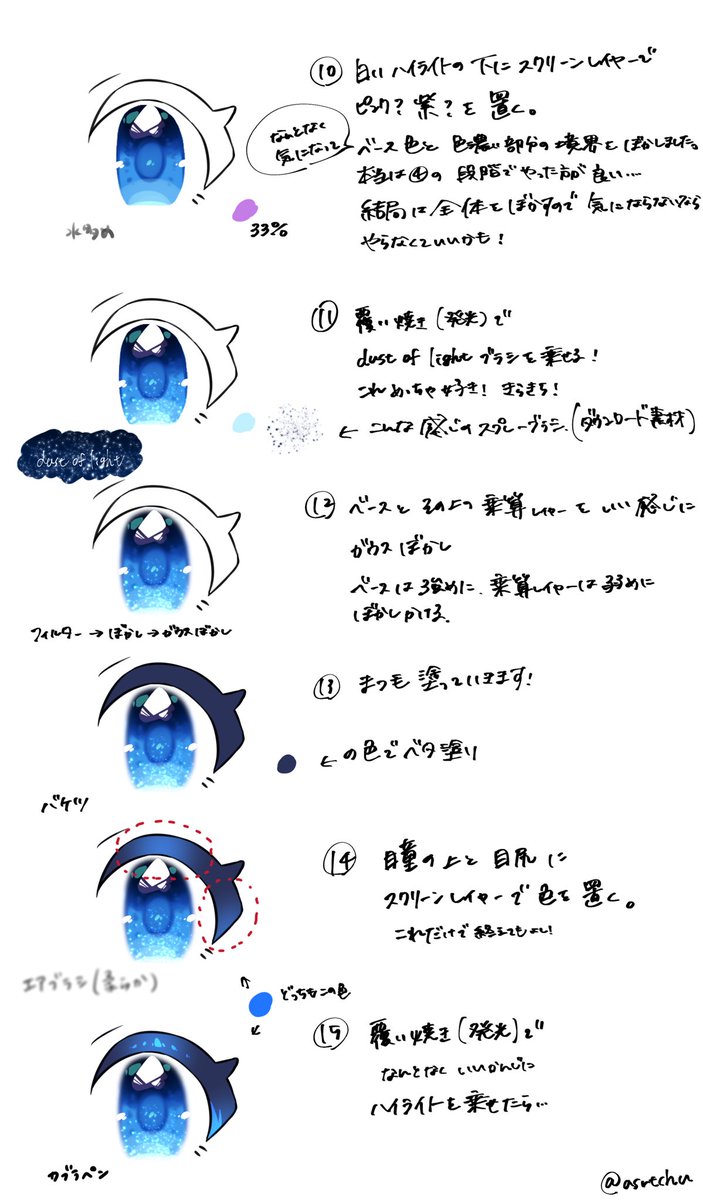 ⑩ 白いハイライトの下にスクリーンレイヤーで
ピンク?紫?を置く。
なんとなく
気になって
ベース色と色濃い部分の境界をぼかしました。
本当は④の段階でやった方が良い…
結局は全体をぼかすので気にならないなら
やらなくていいかも!
水多め
33%
⑪ 覆い焼き(発光)で
dust of lightブラシを乗せる!
これめっちゃ好き!きらきら!
← こんな感じのスプレーブラシ.(ダウンロード素材)
dust of light
⑫ ベースとその上の乗算レイヤーをいい感じに
ガウスぼかし
ベースは強めに、乗算レイヤーは弱めに
ぼかしかける.
フィルター→ぼかし→ガウスぼかし
⑬ まつも塗っていきます!
←の色でベタ塗り
バケツ
⑭ 目瞳の上と目尻に
スクリーンレイヤーで色を置く。
これだけで終えてもよし!
エアブラシ(柔らか)
どっちもこの色
⑮ 覆い焼き(発光)で
なんとなくいいかんじに
ハイライトを乗せたら…
カブラペン